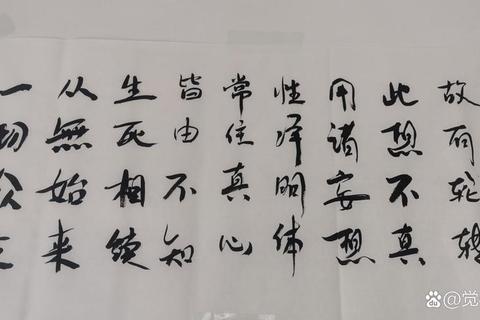 一切众生
从無始来
生死相续
皆由不知
常住真心
性净明体
用诸妄想
此想不真
故有轮转
@觉